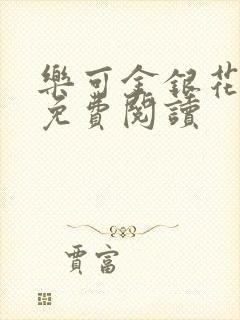 樂可金銀花
免費閱讀
賈富